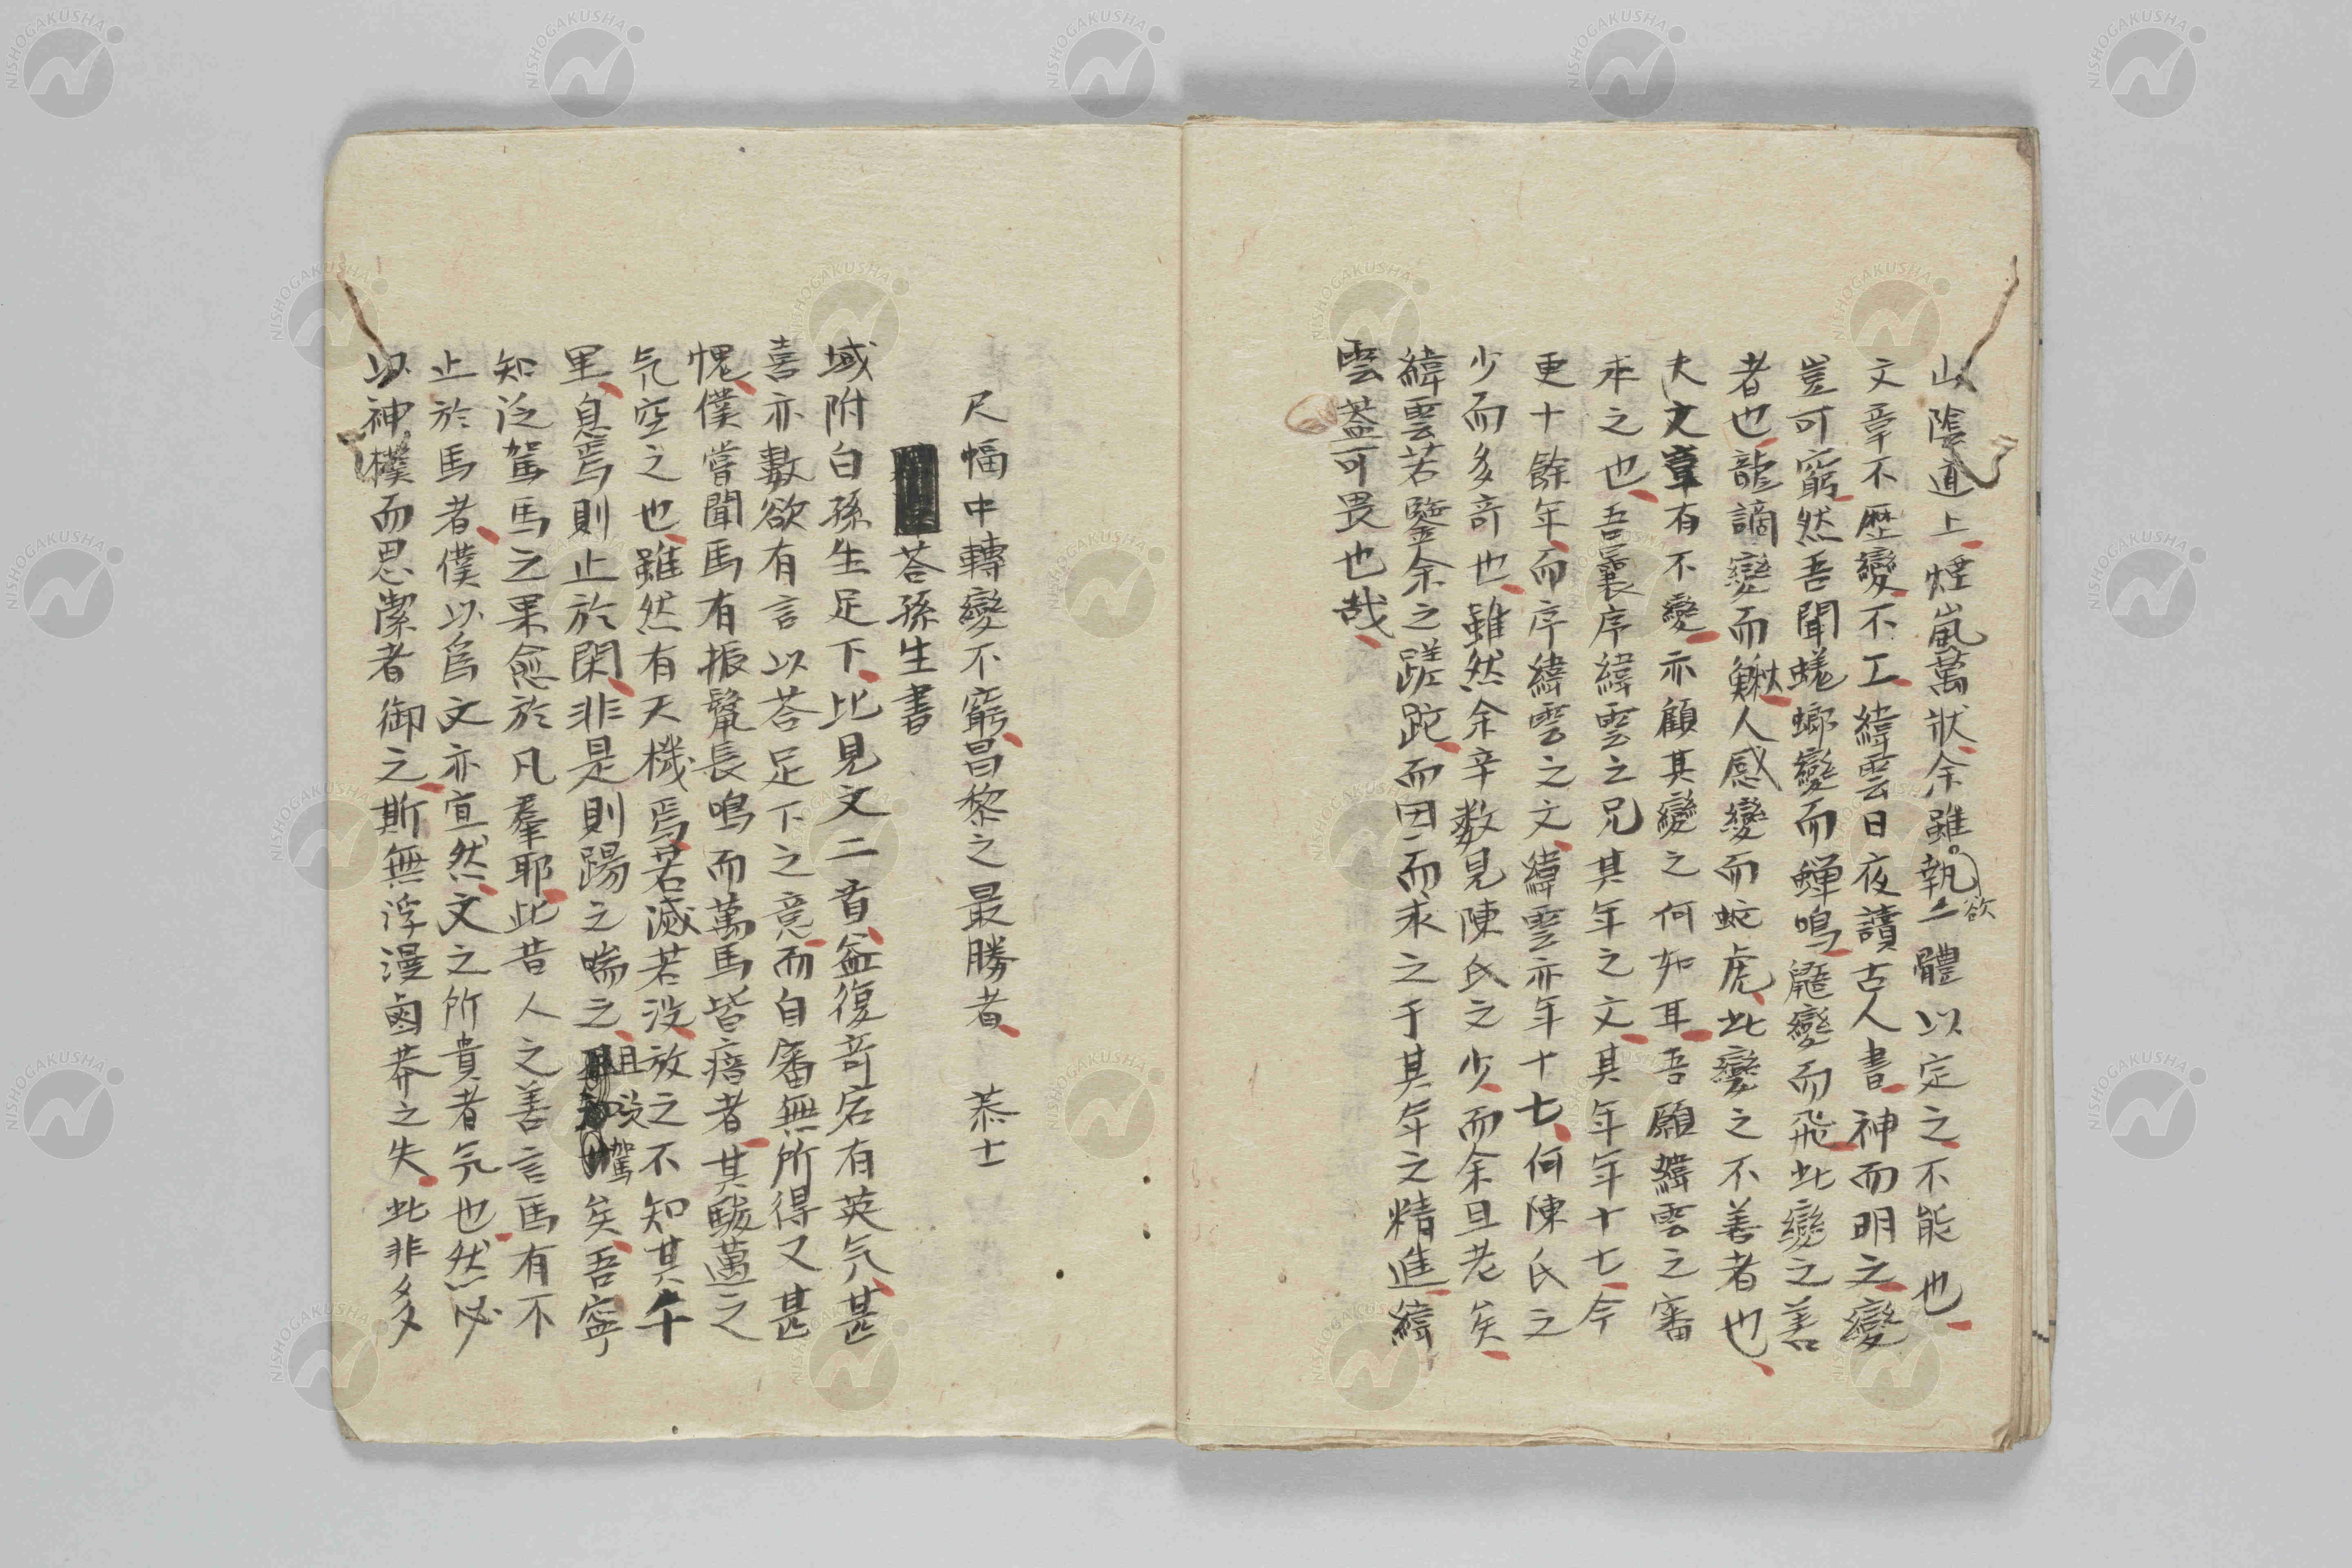 山陰道上煙嵐萬狀余雖執一體以定之不能也
欲
文章不歴變不工緯雲日夜讀古人書神而明之變
豈可窮然吾聞蜣螂變而蟬鳴鼯變而飛此變之善
者也龍謫變而鰍人感變而蛇虎此變之不善者也
夫文章有不變亦顧其變之何如耳吾願緯雲之審
求之也吾曩序緯雲之兄其年之文其年年十七今
更十餘年而序緯雲之文緯雲亦年十七何陳氏之
少而多奇也雖然余辛数見陳氏之少而余且老矣
緯雲若鑒余之蹉跎而因而求之于其年之精進緯
雲蓋可畏也哉
尺幅中轉變不窮昌黎之最勝者 恭士
荅孫生書
域附白孫生足下比見文二首益復奇宕有英气甚
喜亦數欲有言以荅足下之意而自審無所得又甚
愧僕嘗聞馬有振鬣長鳴而萬馬皆瘖者其駿邁之
气空之也雖然有天機焉若滅若没放之不知其千
里息焉則止於閑非是則踢之喘之
且吺駕
矣吾寧
知泛駕馬之果愈於凡羣耶此昔人之善言馬有不
止於馬者僕以爲文亦宜然文之所貴者气也然必
以神樸而思潔者御之斯無浮漫鹵莽之失此非多